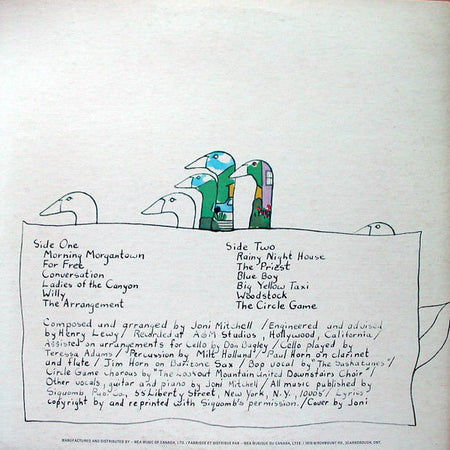 Side One
Morning Morgantown
For Free
Conversation
Ladies of the Canyon
Willy
The Arrangement
Side Two
Rainy Night House
The Priest
Blue Boy
Big Yellow Taxi
Woodstock
The Circle Game
Composed and arranged by Joni Mitchell / Engineered and advised
by Henry Lewy / Recorded at A&M Studios, Hollywood, California /
Assisted on arrangements for Cello by Don Bagley / Cello played by
Teressa Adams / Percussion by Milt Holland / Paul Horn on clarinet
and flute / Jim Horn on Baritone Sax / Bop vocal by "The Saskatunes" /
Circle Game Chorus by "The Lookout Mountain United Downstairs Choir" /
Other vocals, guitar and piano by Joni Mitchell / All music published by
Siquomb Pub. Co, 55 Liberty Street, New York, N.Y., 10005 / Lyrics
copyright by and reprinted with Siquomb's permission. / Cover by Joni
MANUFACTURED AND DISTRIBUTED BY - WEA MUSIC OF CANADA, LTD. / FABRIQUE ET DISTRIBUE PAR - WEA MUSIQUE DU CANADA, LTEE. / 1810 BIRCHMOUNT RD., SCARBOROUGH, ONT.